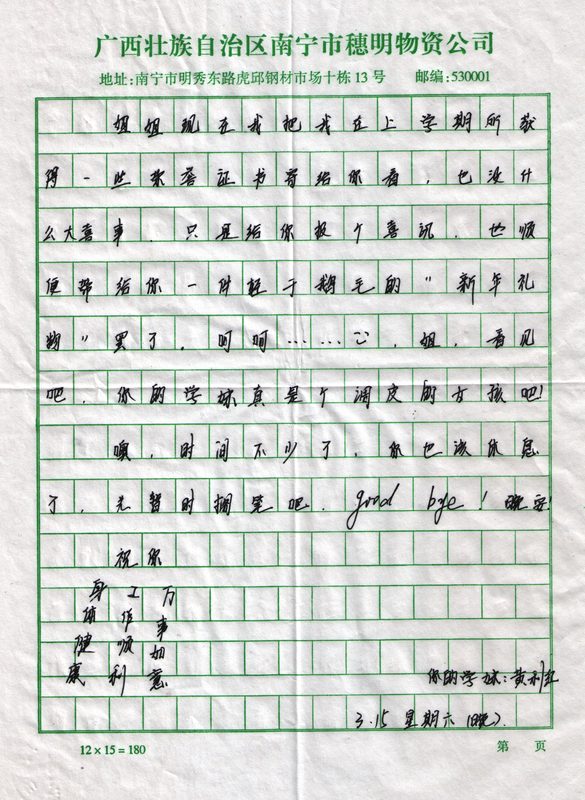 广西壮族自治区南宁市穗明物资公司
地址:南宁市明秀东路虎邱钢材市场十栋13号 邮编:530001
姐姐现在我把我在上学期所获
得一些荣誉证书寄给你看,也没什
么大喜事.只是给你报个喜讯.也顺
便带给你一件轻于鹅毛的"新年礼
物"罢了.呵呵……,姐,看见
吧.你的学妹真是个调皮的女孩吧!
噢,时间不少了,你也该休息
了,先暂时搁笔吧.good bye!晚安!
祝你
身体健康
工作顺利
万事如意
你的学妹:黄利
3.15 星期六(晚)
12×15=180
第 页